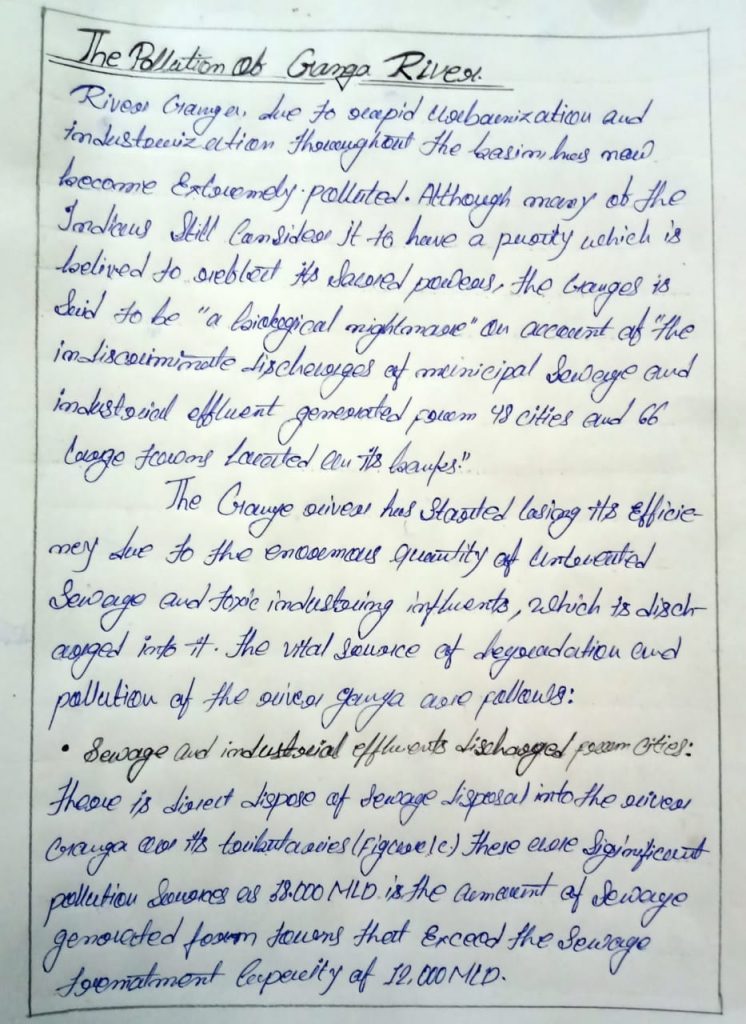 The Pollution of Ganga River.
River Ganga, due to rapid Urbanization and
industrization throughout the basin, has now
become Extremely polluted. Although many of the
Indians Still Consider it to have a purity which is
belived to reflect its Sacred powers, the Ganges is
Said to be "a biological nightmare" on account of "the
indiscriminate discharges of municipal Sewage and
industrial effluent generated from 48 cities and 66
large towns Located on its banks."
The Gange river has Started losing its Efficie-
ncy due to the enormous quantity of Untreated
Sewage and toxic industring influents, which is disch-
arged into it. The vital source of degradation and
pollution of the river ganga are follows:
• Sewage and industrial effluents discharged from Cities:
There is direct dispose of Sewage disposal into the river
Ganga or its tributaries (Figure 1c) These are Siginificant
pollution Sources as 38.000 MLD is the amount of Sewage
generated from towns that Exceed the Sewage
trematment Capacity of 12,000 MLD.